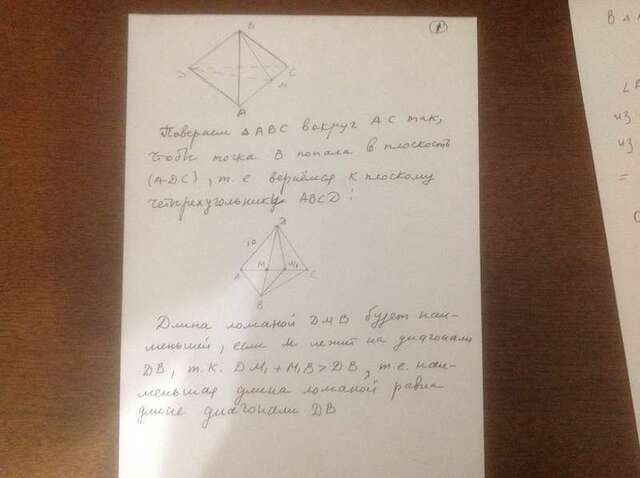 1
B
D
C
M
A
Повернем △ABC вокруг AC так,
чтобы точка B попала в плоскость
(ADC), т.е вернёмся к плоскому
четырехугольнику ABCD:
D
10
A M M₁ C
B
Длина ломаной DMB будет наи-
меньшей, если M лежит на диагонали
DB, т.к. DM₁ + M₁B > DB, т.е. наи-
меньшая длина ломаной равна
длине диагонали DB
В △
∠
из
из
=